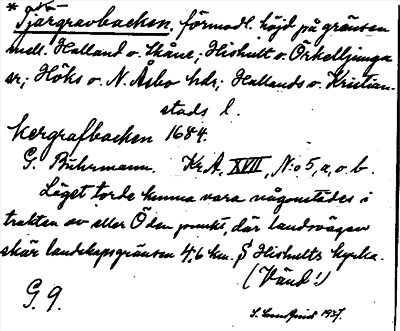 * Tjärgravbacken, förmodl. höjd på gränsen
mell. Halland o. Skåne, Hishult o. Örkelljunga
sr; Höks o. N. Åsbo hdr; Hallands o. Kristian-
stads l.
Kergrafbacken 1684.
G. Buhrmann. Kr. A. XVIII, N:o 5, a, o. b.
Läget torde kunna vara någonstädes i
trakten av eller Ö den punkt, där landsvägen
skär landskapsgränsen 4,6 km. S Hishults kyrka.
(Vänd!)
G. 9.
1937.